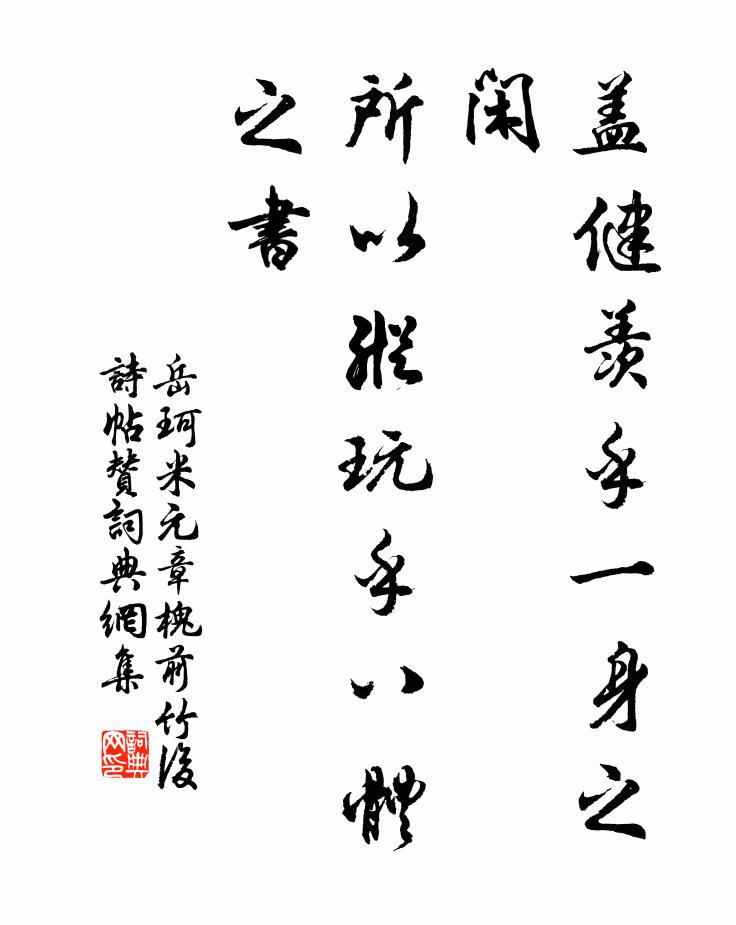 盖健羨乎一身之
閑
所以縱玩乎八體
之書
岳珂米元章槐前竹後
詩帖贊詞典網集
詞典
网印